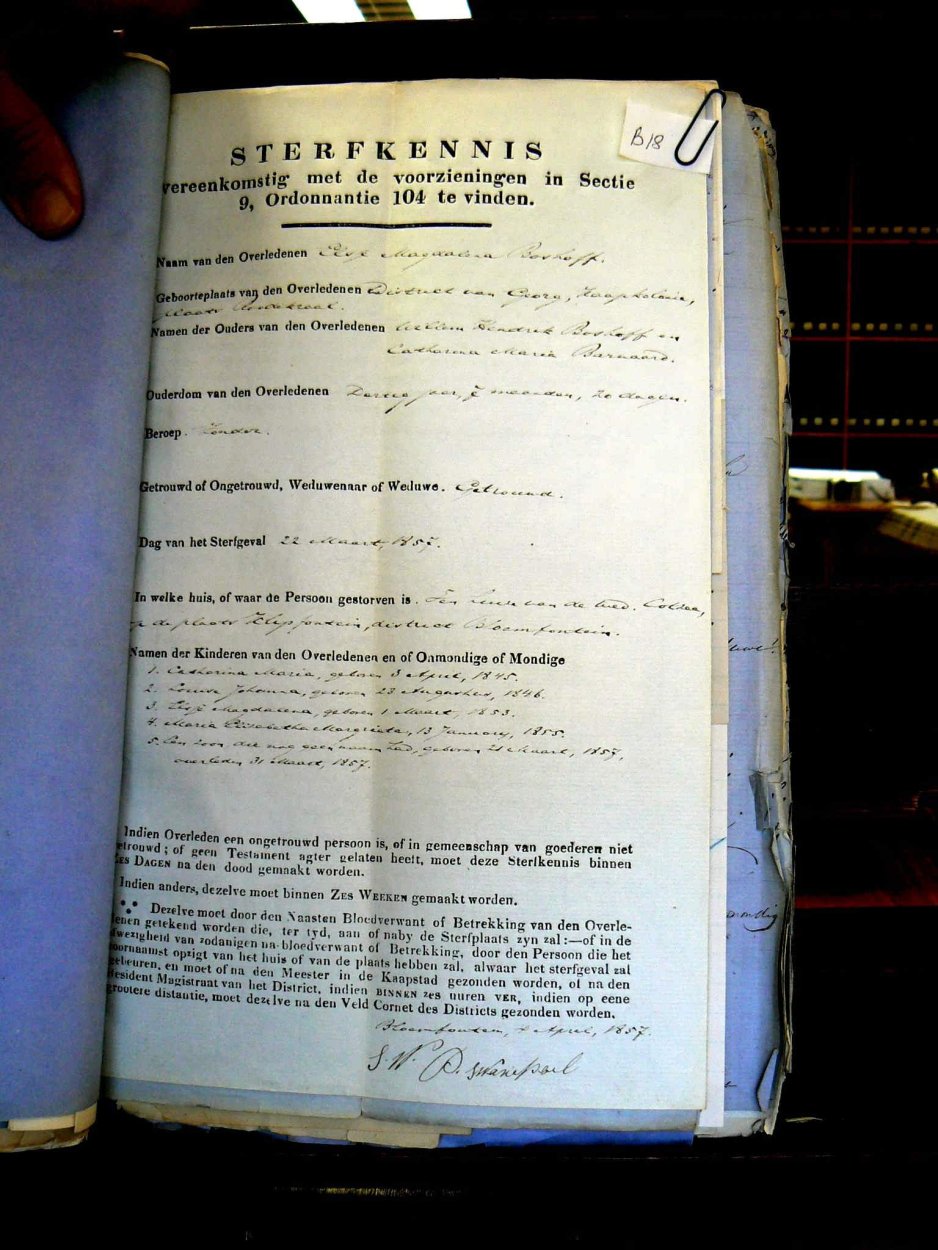 B18
STERFKENNIS
vereenkomstig met de voorzieningen in Sectie
9, Ordonnantie 104 te vinden.
Naam van den Overledenen Elsje Magdalena Boshoff.
Geboorteplaats van den Overledenen District van Georg, Kaapkolonie,
plaats
Namen der Ouders van den Overledenen Willem Hendrik Boshoff en
Catharina Maria Barnaard.
Ouderdom van den Overledenen Dertig jaar, 7 maanden, 20 dagen.
Beroep. Zonder.
Getrouwd of Ongetrouwd, Weduwenaar of Weduwe. Getrouwd.
Dag van het Sterfgeval 22 Maart, 1857.
In welke huis, of waar de Persoon gestorven is. Ten huize van de wed.
op de plaats Klipfontein, district Bloemfontein.
Namen der Kinderen van den Overledenen en of Onmondige of Mondige
1. Catharina Maria, geboren 3 April, 1845.
2. Louisa Johanna, geboren 23 Augustus, 1846.
3. Elsje Magdalena, geboren 1 Maart, 1853.
4. Maria Elizabetha Margrieta, 13 January, 1855.
5. Een zoon die nog geen naam had, geboren 21 Maart, 1857,
overleden 31 Maart, 1857.
Indien Overleden een ongetrouwd persoon is, of in gemeenschap van goederen niet
etrouwd; of geen Testament agter gelaten heeft, moet deze Sterfkennis binnen
ZES DAGEN na den dood gemaakt worden.
Indien anders, dezelve moet binnen ZES WEEKEN gemaakt worden.
Dezelve moet door den Naasten Bloedverwant of Betrekking van den Overle-
denen getekend worden die, ter tyd, aan of naby de Sterfplaats zyn zal:—of in de
afwezigheid van zodanigen na-bloedverwant of Betrekking, door den Persoon die het
voornaamst opzigt van het huis of van de plaats hebben zal, alwaar het sterfgeval zal
gebeuren, en moet of na den Meester in de Kaapstad gezonden worden, of na den
Resident Magistraat van het District, indien BINNEN ZES UUREN VER, indien op eene
grootere distantie, moet dezelve na den Veld Cornet des Districts gezonden worden.
Bloemfontein, 4 April, 1857.
S. W. P. Swanepoel